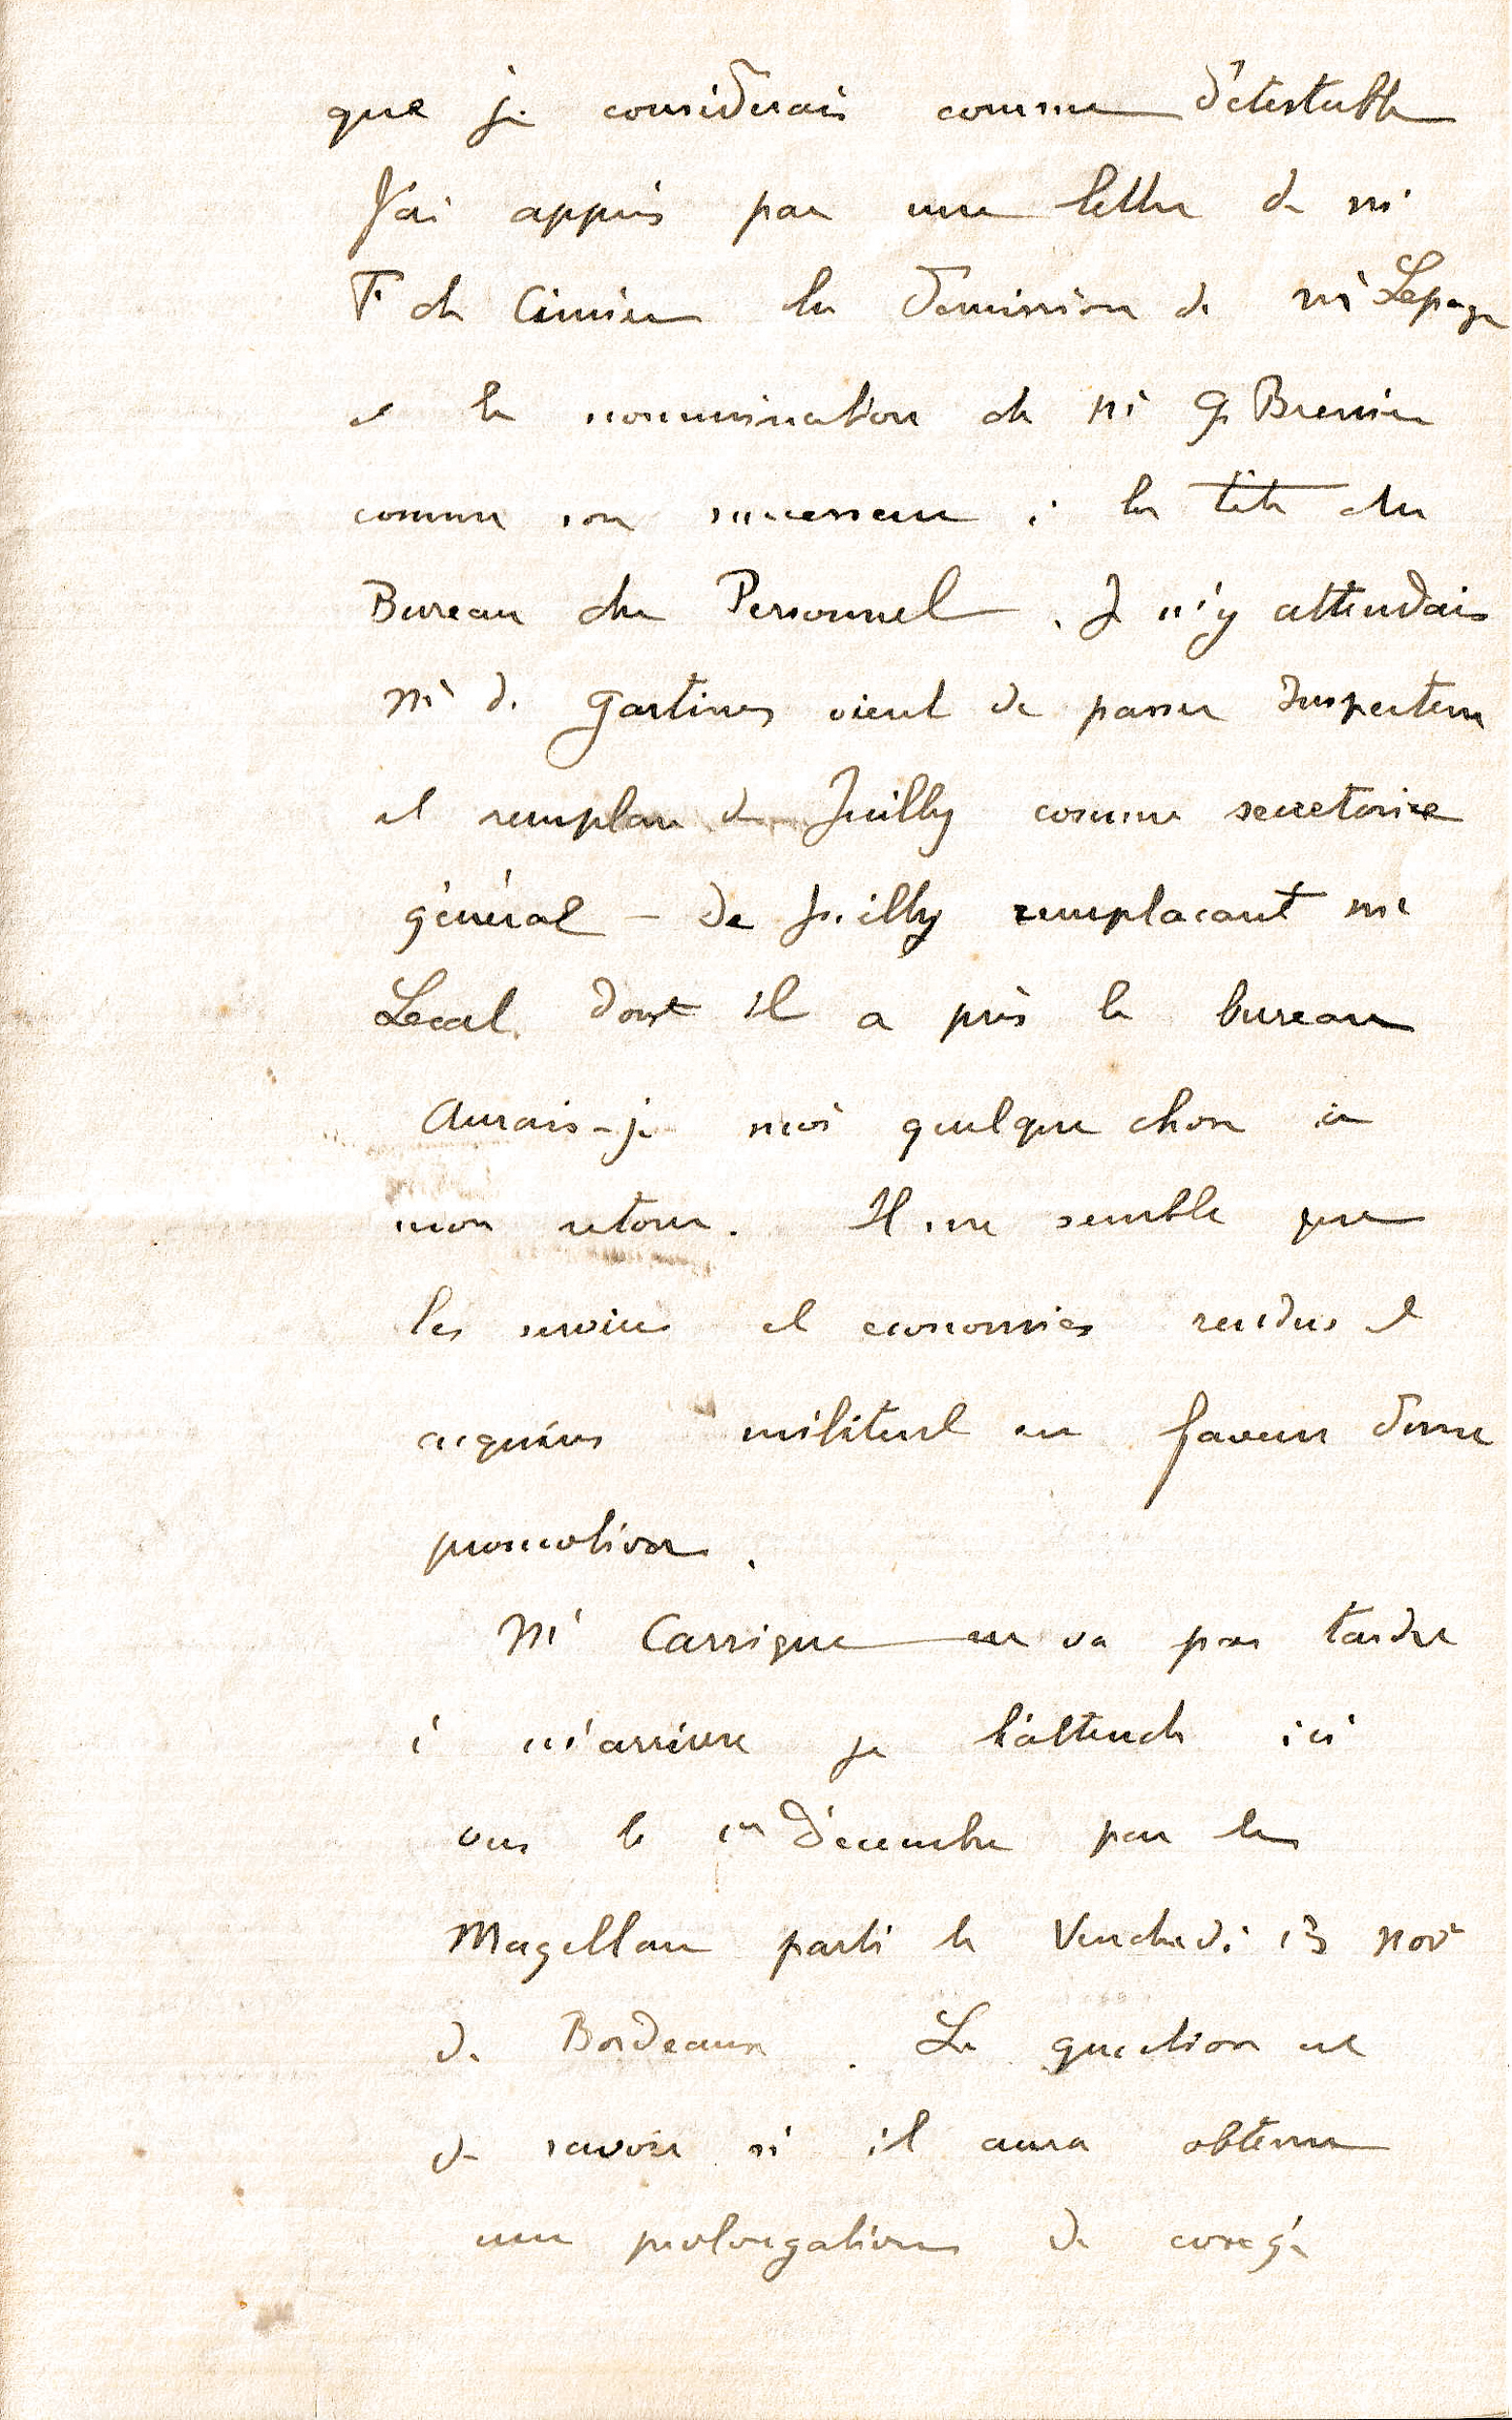 que je considerais comme détestable
J'ai appris par une lettre de Mr
F de la demission de Mr Lepage
et la nommination de Mr G Brenier
comme son successeur à la tête du
Bureau du Personnel. Je m'y attendais
Mr de Gastines vient de passer Inspecteur
et remplace de Juilly comme secretaire
général – de Juilly remplacant Mr
Lecal dont il a pris le bureau
Aurais-je moi quelque chose à
mon retour. Il me semble que
les services et economies rendus et
acquises militent en faveur d'une
promotion.
Mr Carrique ne va pas tarder
à m'arriver je l'attends ici
vers le 1er Décembre par le
Magellan parti le Vendredi 13 Nov
de Bordeaux. La question est
de savoir si il aura obtenu
une prolongation de congé